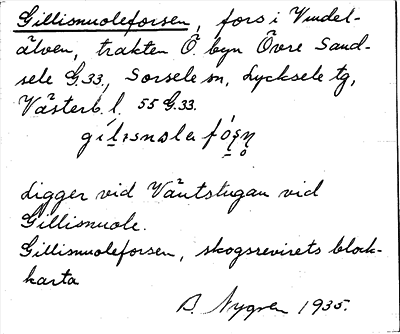 Gillismuoleforsen, fors i Vindel-
älven, trakten Ö byn Övre Sand-
sele G.33, Sorsele sn, Lycksele tg,
Västerb. l. 55 G.33.
Ligger vid Väntstugan vid
Gillismuole.
Gillismuoleforsen, skogsrevirets block-
karta
Nygren 1935.